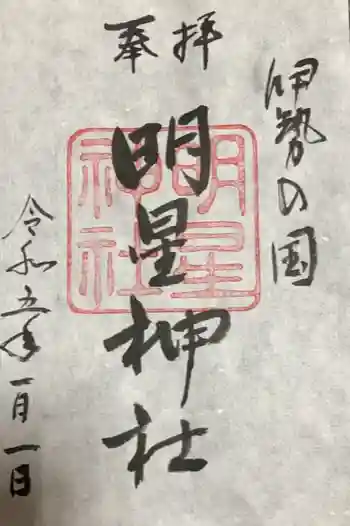 奉拝
伊勢の国
明星神社
明星
神社
令和五年一月一日